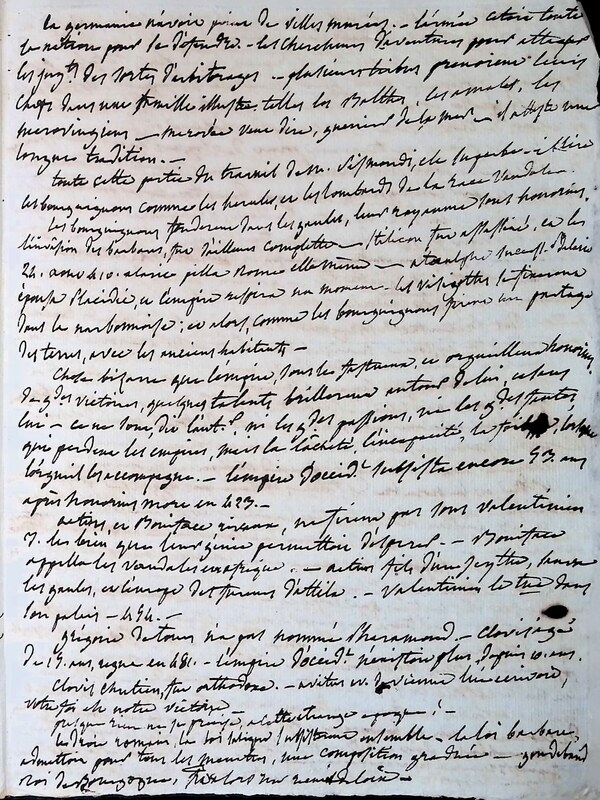 la germanie n'avoit point de villes murées. – l'armée etait toute
la nation pour se défendre – les chercheurs d'aventures pour attaquer
les jug.ts des sortes d'arbitrages – plusieurs tribus prenoient leurs
chefs dans une famille illustre. telles les Balthes, les amales, les
merovingiens – merovée veut dire, guerrier de la mer – il atteste une
longue tradition. –
toute cette partie du travail de m. Sismondi, est superbe –
les bourguignons comme les herules, et les lombards de la race Vandale.
les bourguignons fonderent dans les gaules, leur royaume sous honorius.
l'invasion des barbares, fut d'ailleurs complette – Stilicon fut assassiné, et le
24. aout 410. alaric pilla Rome elle même – ataulphe success.r d'alaric
épousa Placidie, et l'empire respira un moment – les visigoths se fixerent
dans la narbonnoise; et alors, comme les bourguignons firent un partage
des terres, avec les anciens habitants –
Chose bizarre que l'empire, sous le et orgueilleux honorius
de g.des victoires, quelques talents brillerent autour de lui, et sans
lui – ce ne sont, dit l'aut.r ni les g.des passions, ni les g.des fautes,
qui perdent les empires, mais la lâcheté, l'incapacité, la lorsque
l'orgueil les accompagne. – l'empire d'occid.t subsista encore 53. ans
après honorius mort en 423. –
aetius, et Boniface rivaux, ne firent pas sous Valentinien
3. le bien que leur génie permettoit d'esperer. – Boniface
appella les vandales en afrique. – aetius fils d'un scythe, sauva
les gaules, et l'europe des fureurs d'attila. – Valentinien le tue dans
son palais – 454. –
grégoire de tours n'a pas nommé Pharamond. – Clovis agé
de 15. ans, regne en 481. – l'empire d'occid.t n'existoit plus, depuis 10. ans.
Clovis chretien, fut orthodoxe. – avitus ev. de vienne lui ecrivoit,
votre foi est notre victoire –
presque rien ne se precise, a cette etrange epoque! –
le droit romain, la loi salique subsisterent ensemble. – la loi barbare,
admettoit pour tous les meurtres, une composition graduée – gondebaud
roi de Bourgogne,